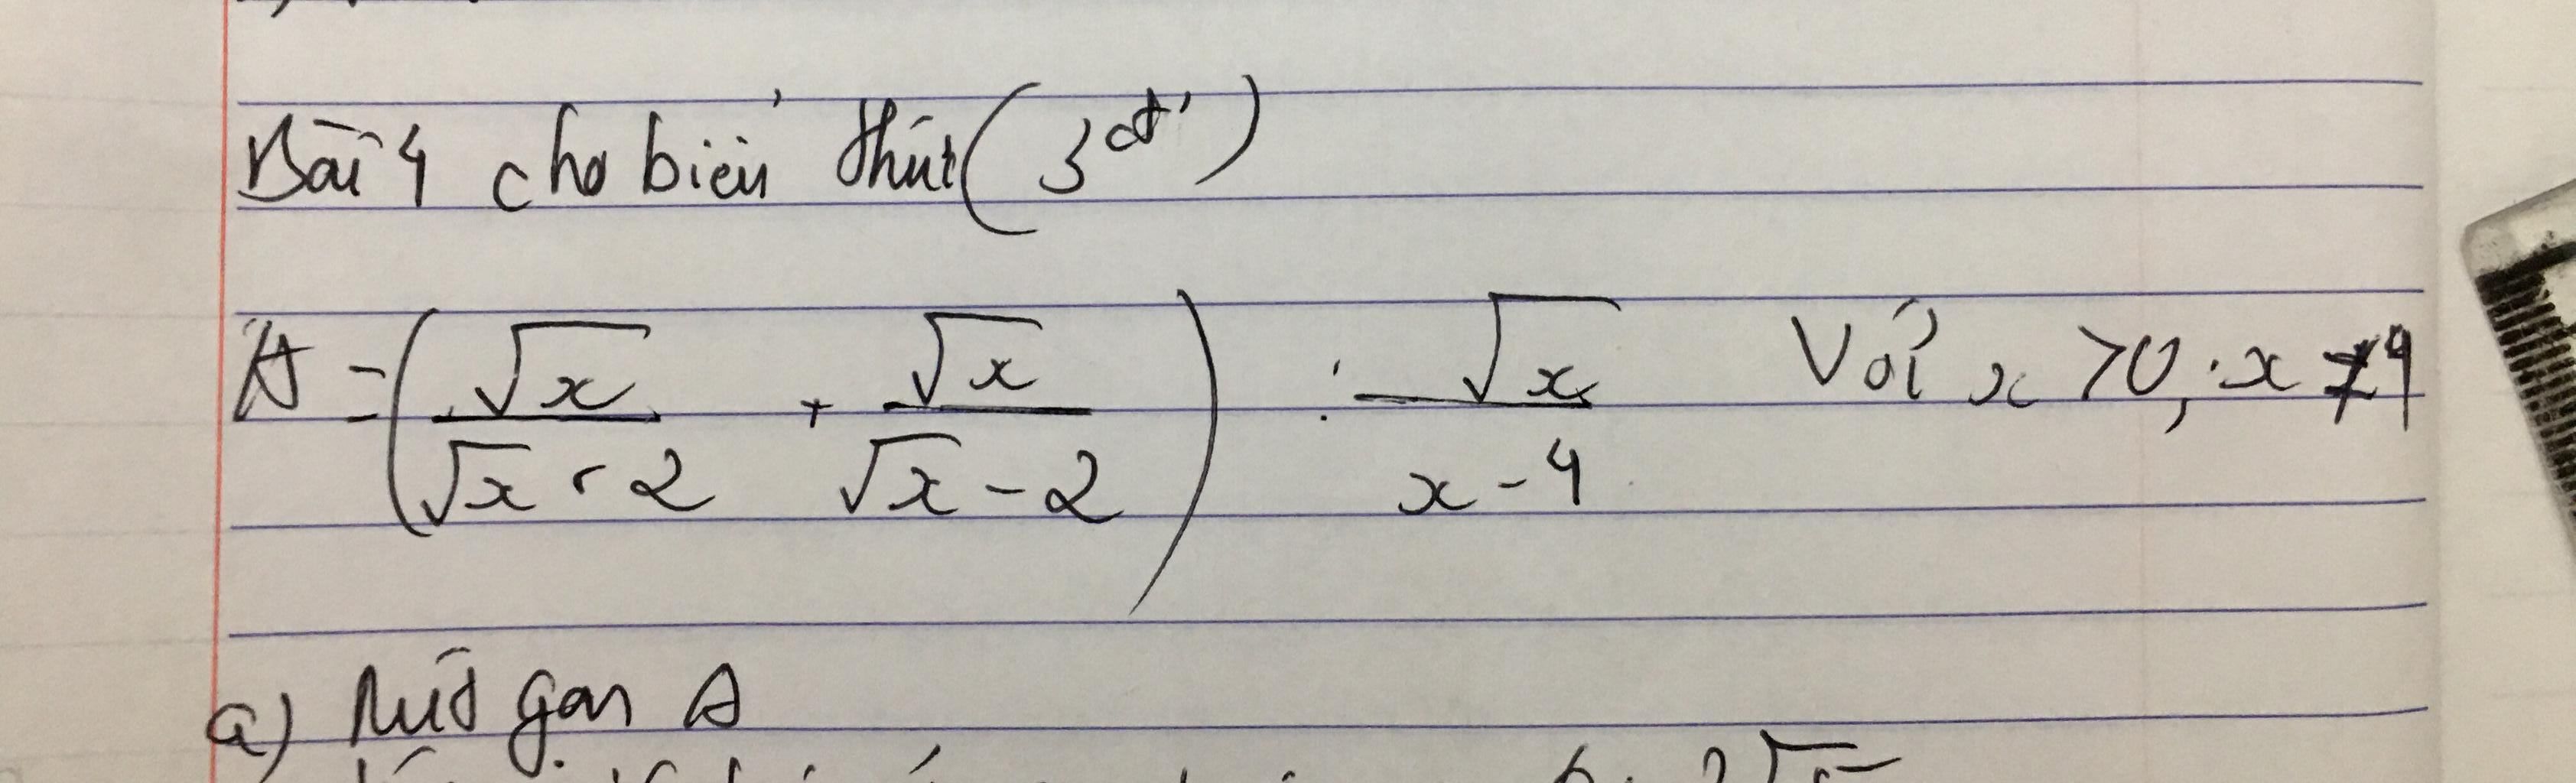 Bài 4 cho biểu thức (3đ')
A = (√x / √x + 2 + √x / √x - 2) : √x / x - 4 Với x > 0, x ≠ 4
a) Rút gọn A